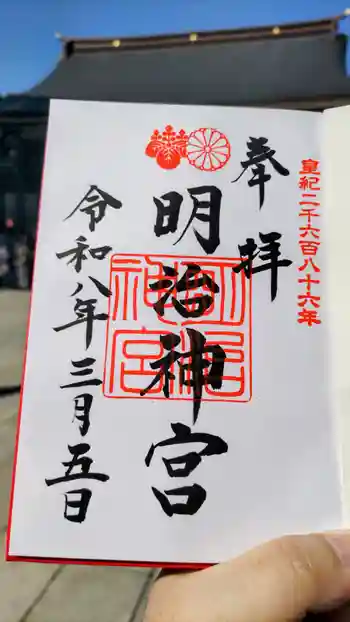 皇紀二千六百八十六年
奉拝
明治神宮
令和八年三月五日
明治神宮